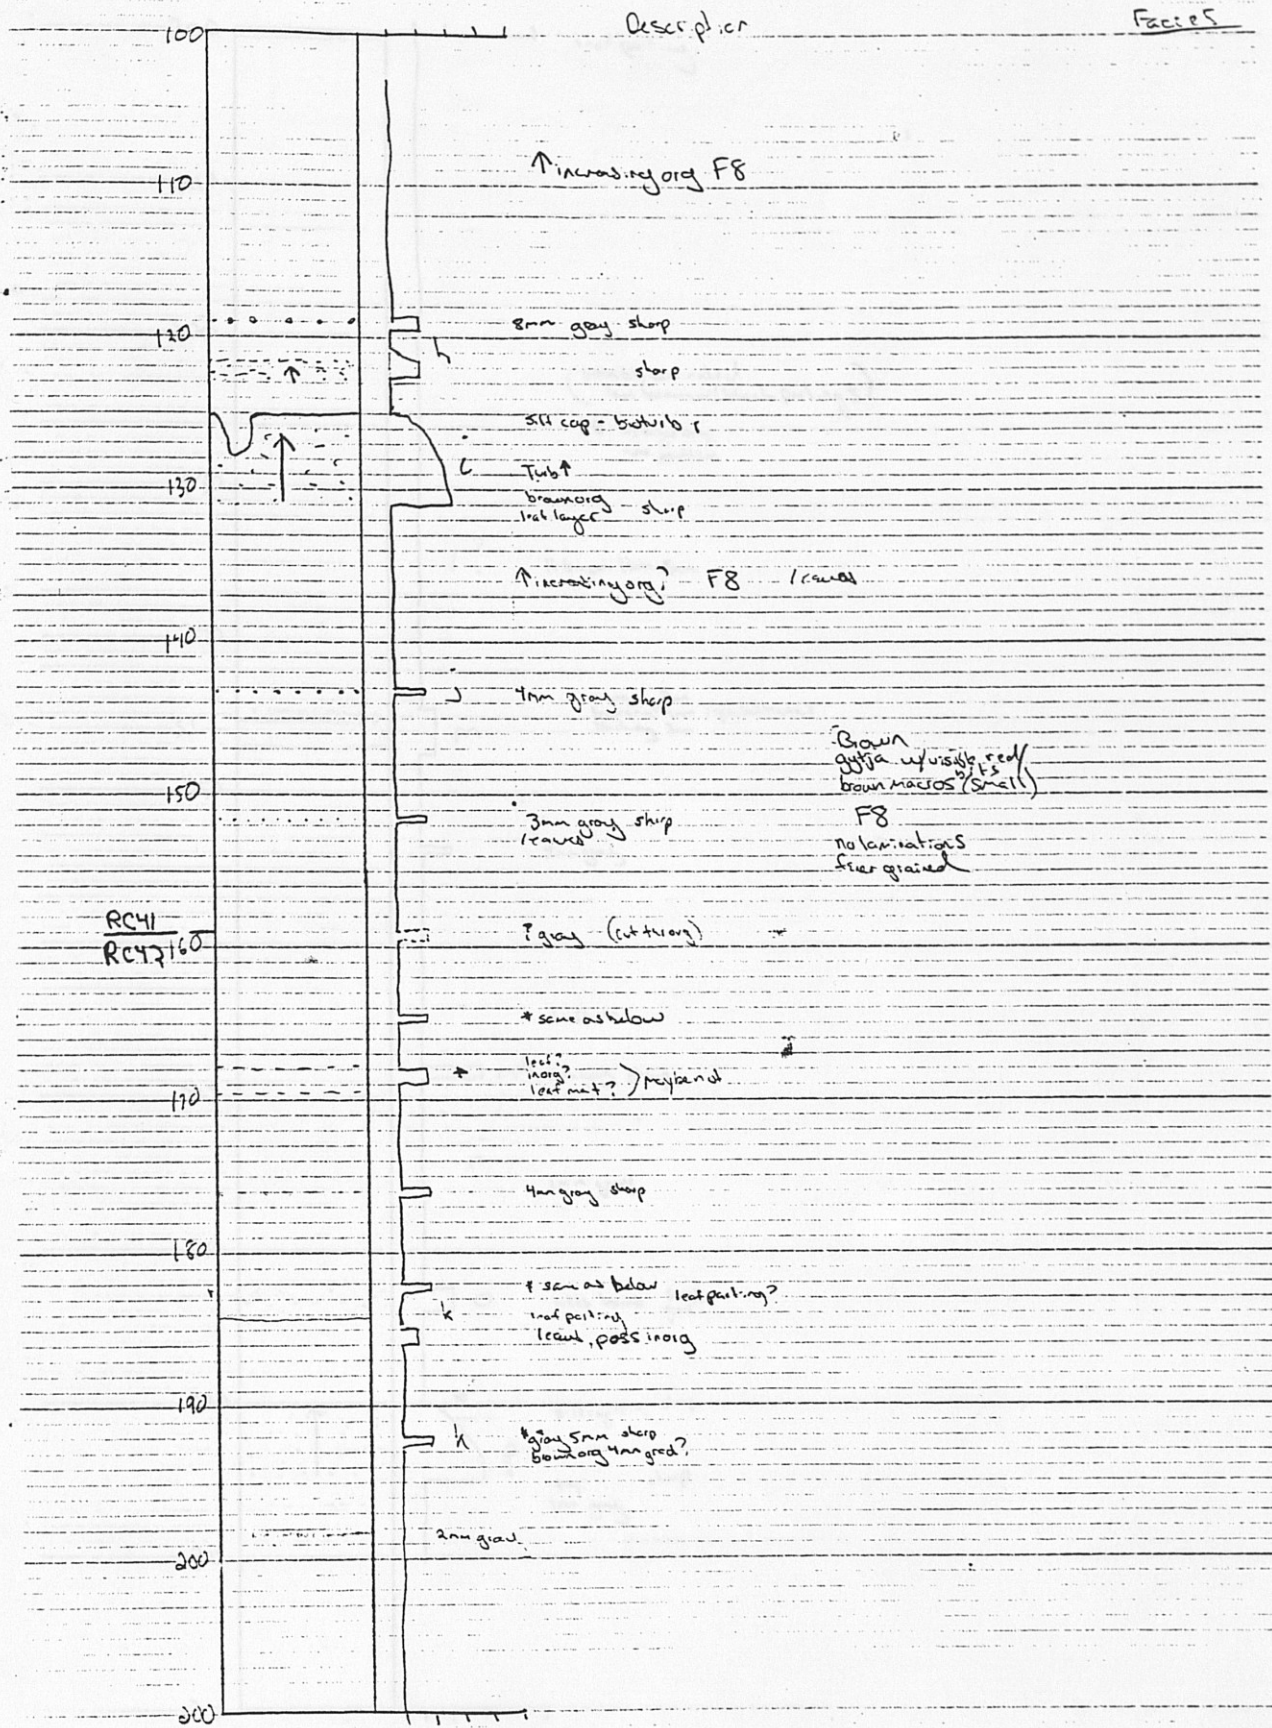 Description
Facies
100
↑ increasing org F8
110
8mm gray sharp
120
h
sharp
silt cap - bioturb
i
Turb ↑
130
brown org
leaf layer sharp
↑ increasing org? F8 leaves
140
j
4mm gray sharp
Brown
gytja w/visible red/
brown macros bits (small)
150
3mm gray sharp
leaves
F8
no laminations
finer grained
RC41
RC42
160
? gray (cut thru org)
* same as below
leaf?
inorg?
leaf mat? ) maybe not
*
170
4mm gray sharp
180
* same as below leaf parting?
k
leaf parting
leaves, poss inorg
190
k
*gray 5mm sharp
brown org 4mm grad?
2mm grad
200
200